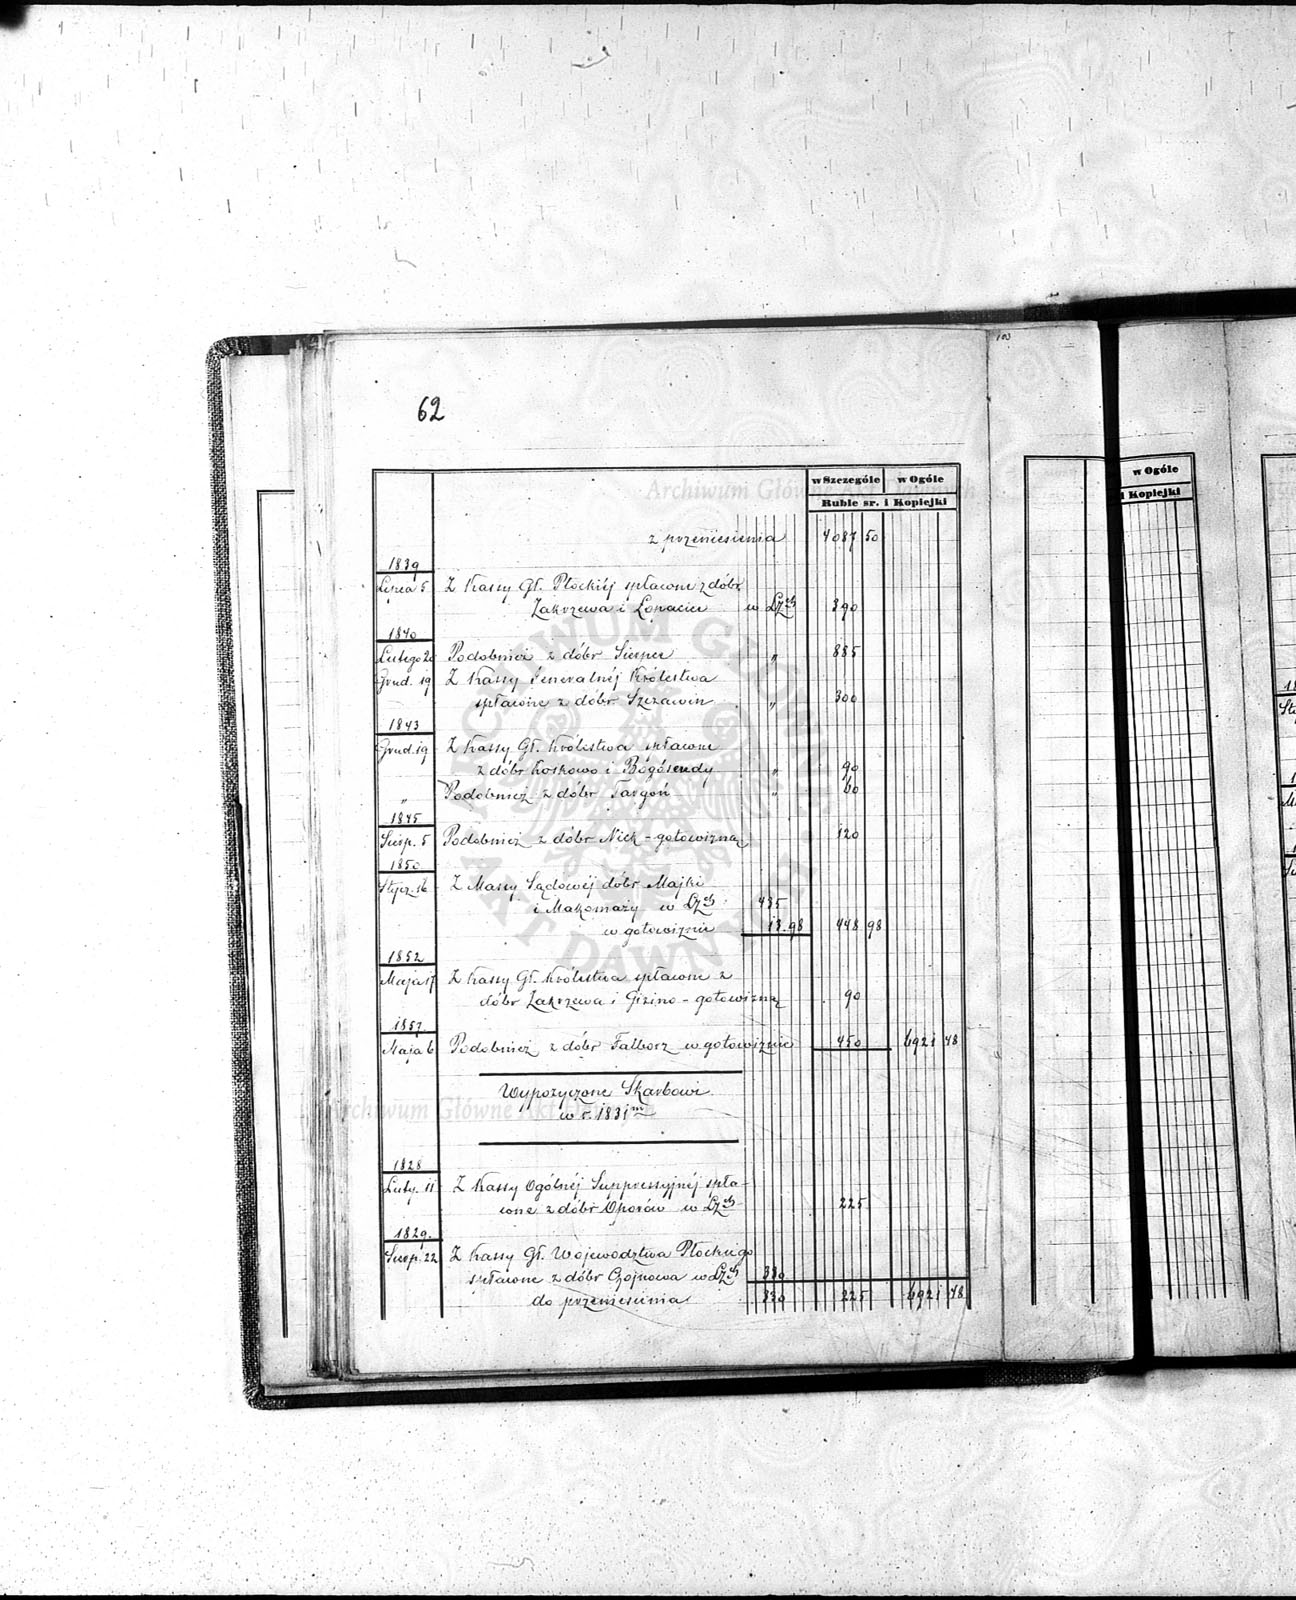 103
62
w Szczególe w Ogóle
Ruble sr. i Kopiejki
w Ogóle
i Kopiejki
z przeniesienia 4087 50
1839
Lipca 5 Z Kassy Gł. Płockiéj spłacone z dóbr
Zakrzewa i Łopacin w LZch 390
1840
Lutego 20 Podobnież z dóbr Sierpce " 885
Grud. 19 Z Kassy Generalnéj Królestwa
spłacone z dóbr Szczawin " 300
1843
Grud. 19 Z Kassy Gł. Królestwa spłacone
z dóbr Koskowo i 90
" Podobnież z dóbr Targoń " 60
1845
Sierp. 5 Podobnież z dóbr Nick - gotowizną 120
1850
Stycz. 16 Z Massy Sądowéj dóbr Majki
i Makomazy w LZch 435
w gotowiznie 13.98 448 98
1852
Maja 17 Z Kassy Gł. Królestwa spłacone z
dóbr Zakrzewa i Gizino - gotowizną 90
1857
Maja 6 Podobnież z dóbr Falborz w gotowiznie 450 6921 48
Wypożyczone Skarbowi
w r. 1831m
1828
Luty. 11 Z Kassy Ogólnéj Suppressyjnéj spła-
cone z dóbr Oporów w LZch 225
1829.
Sierp. 22 Z Kassy Gł. Województwa Płockiego
spłacone z dóbr Czojnowa w LZch 330
do przeniesienia 330 225 6921 48
Archiwum Główne Akt Dawnych
Archiwum Główne Akt Dawnych
ARCHIWUM GŁÓWNE AKT DAWNYCH